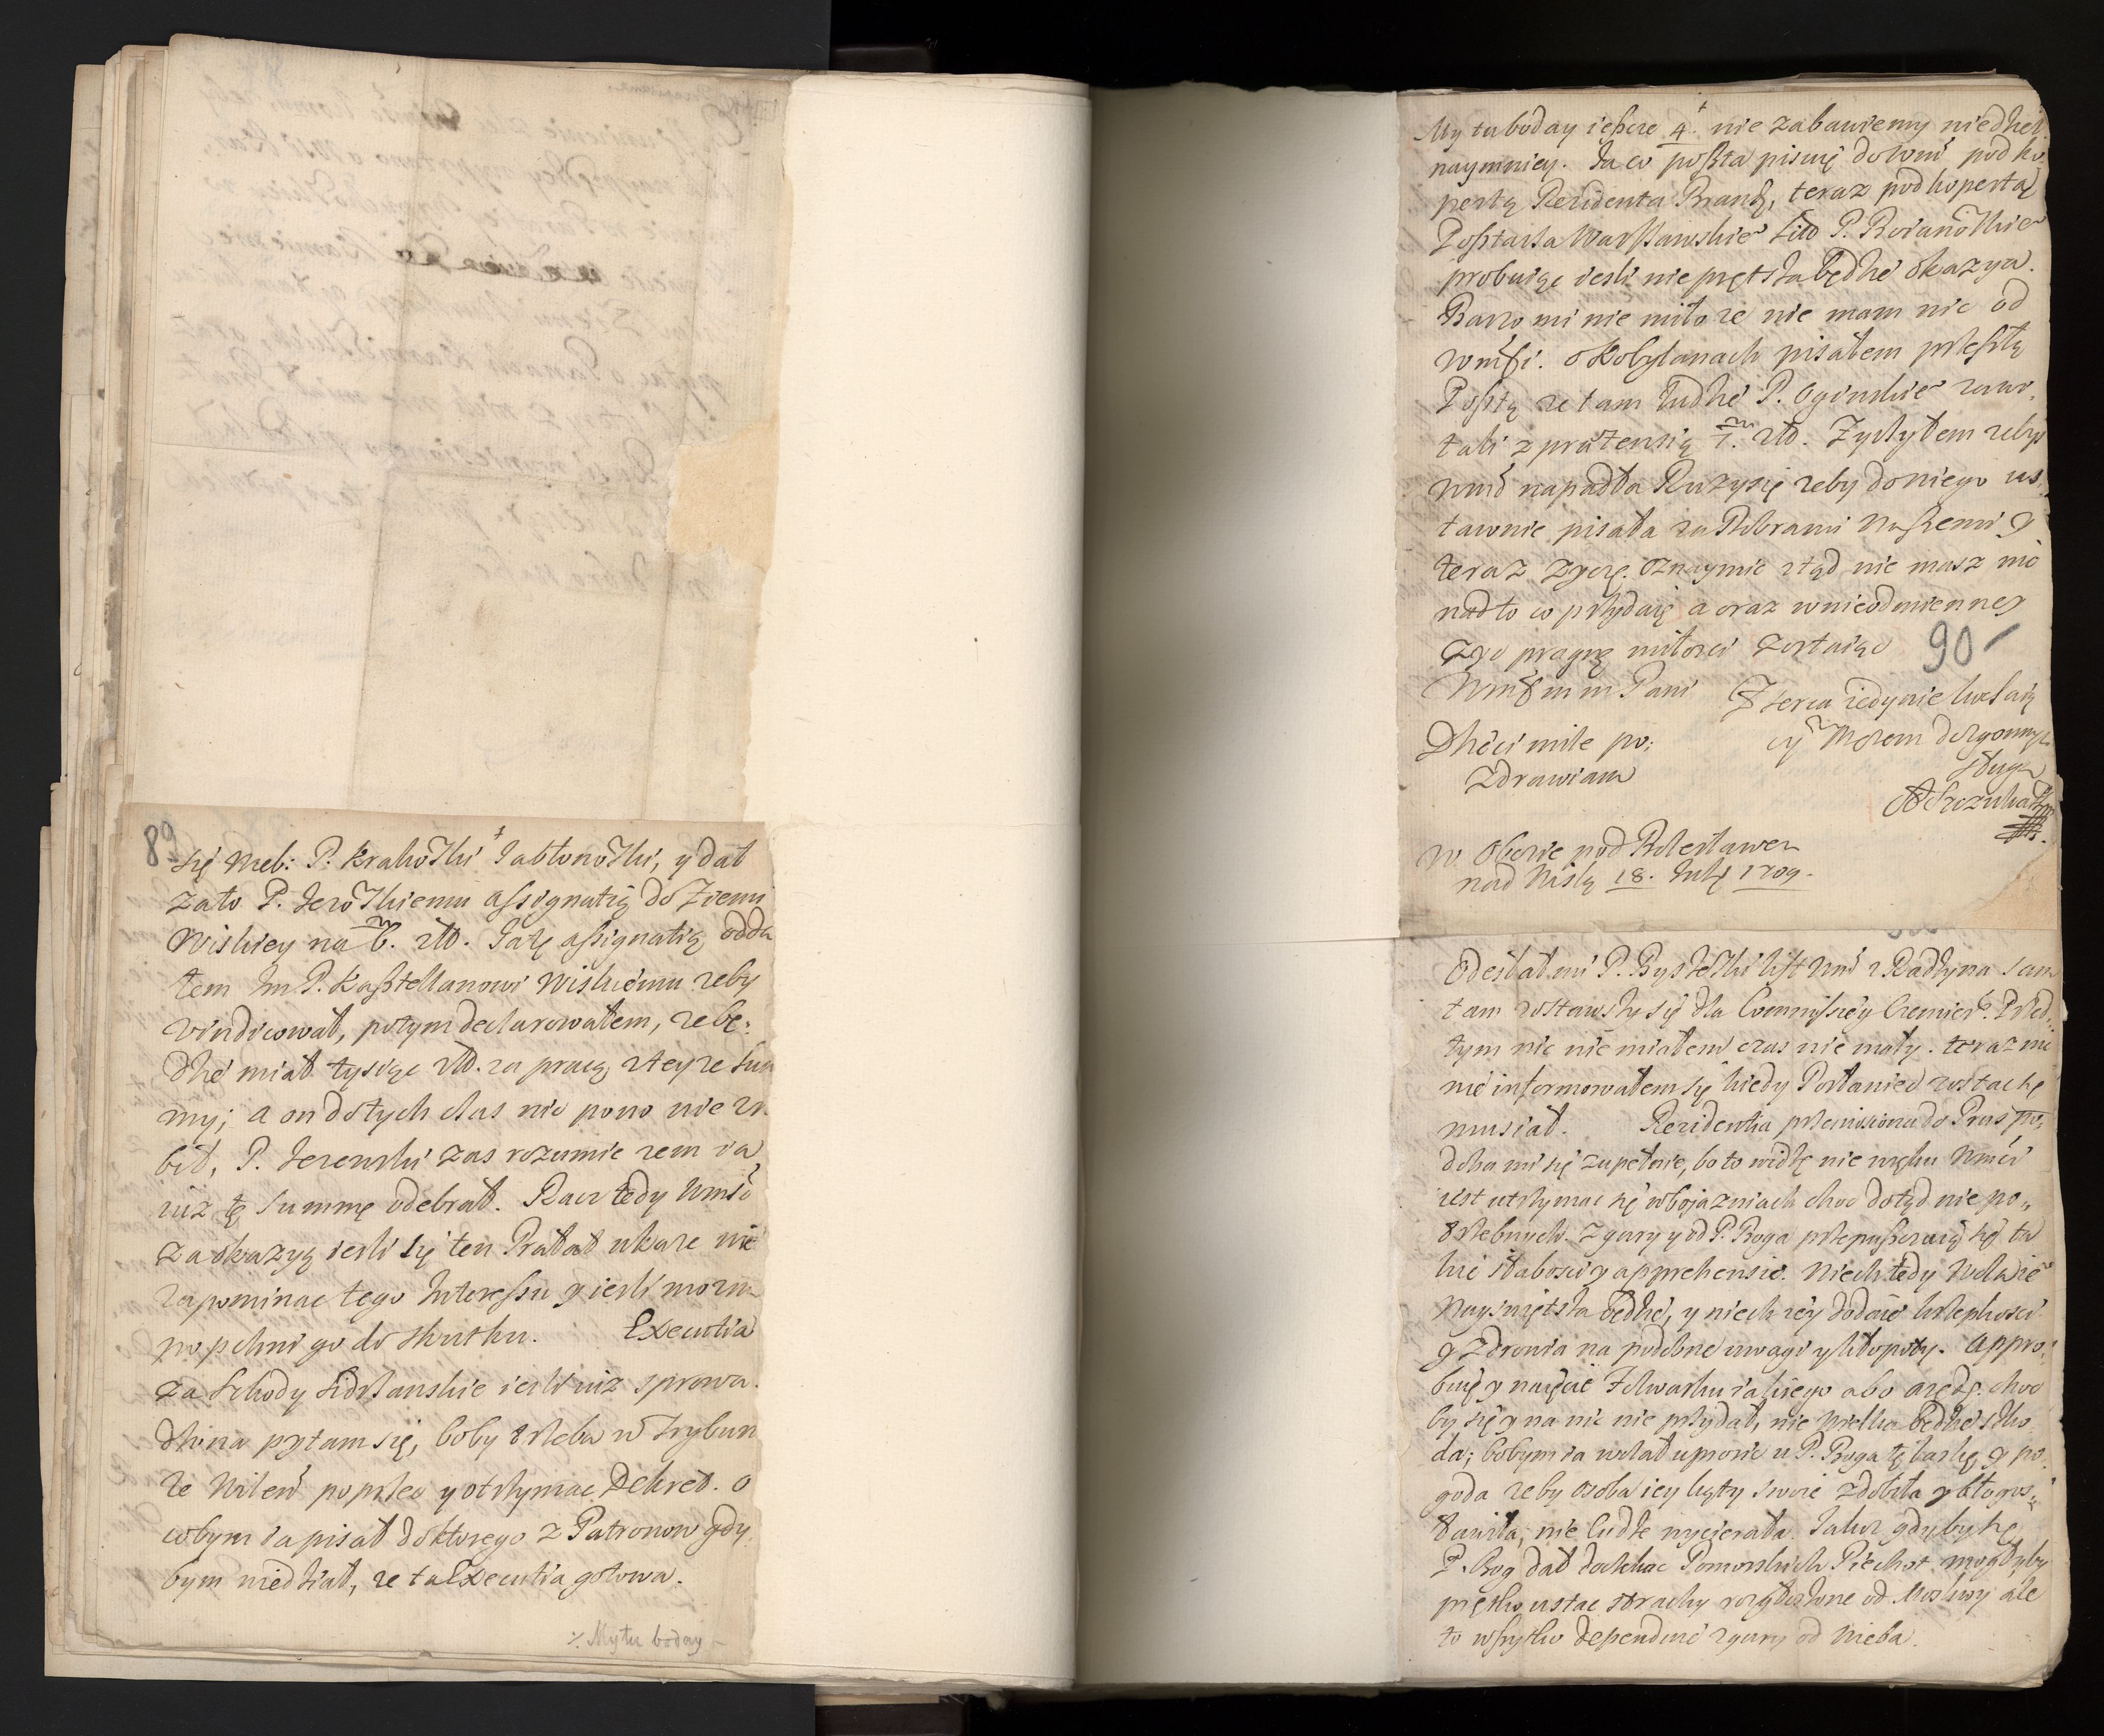 89
się Meb: P. Krakoski Jabłonoski, y dał
zato P. Jeroskiemu assignatią do Ziemi
Wiskiey na 6. zło. Ja tę assignatią odda
łem Im P. Kasztellanowi Wiskiemu żeby
vindicował, potym declarowałem, że bę:
dzie miał tysiąc zło. za pracą z teyże Sum
my; a on dotych czas nic pono nie zro
bił, P. Jezewski zas rozumie żem ia
iuż tę Summę odebrał. Racz tedy Wmść
za okazyą iesli się ten Prałat ukaże nie
zapominac tego Interessu y iesli można
popchni go do skutku. Executia
za Szkody Sidrzanskie iesli iuż sprowa.
dzona pytam się, boby trzeba w Trybun
le Wileń poprzec y otrzymac Dekret. o
cobym ia pisał do ktorego z Patronow gdy
bym wiedział, że ta Executia gotowa.
·/. My tu boday –
My tu boday ieszcze 4. nie zabawiemy niedziel
naymniey. Ja co poszta piszuię do Wmś pod ko
pertą Rezidenta Brand, teraz pod kopertą
Posztarza Warszawskie P. Roianoskie
probuiąc iesli nie prętsza będzie okazya.
Barzo mi nie miło że nie mam nic od
Wmści. o Kobylanach pisałem przeszłą
Posztą że tam ludzie P. Oginskie zaw
tali z prætensią 7. zło. Zyczyłem żebys
Wmś napadła Ruzysię żeby do niego us
tawnie pisała za Dobrami naszemi y
teraz życzę. Oznaymic ztąd nie masz nic
nad to co przydaię a oraz w nieodmienney
żyć pragnę miłosci zostaiąc
90 –
Wmści mm Pani
Z serca iedynie kochaią
cy Mężem dozgonnym
sługą
Dzieci mile po:
zdrawiam
W Oborze pod Bolesławem
nad Wisłą 18. July 1709.
Odesłał mi P. Bystrzski list Wmś z Radzyna sam
tam zostawszy się dla Commissiey Krzemień. Przed
tym nic nie miałem czas nie mały. teraz nie
nie informowałem się kiedy Posłaniec zostac się
musiał. Rezidentia przeniesiona do Prus po:
doba mi się zupełnie, bo to widzę nie w ręku Wmści
iest utrzymac się w bojazniach choc dotąd niepo,,
trzebnych. Z gury y od P. Boga przepuszczaią się ta
kie słabosci y apprehensie. Niech tedy Wola ie
Nayswiętsza będzie, y niech iey dodaie krzepkosci
y Zdrowia na podobne uwagi y kłopoty. Appro:
buię y naięcie Folwarku iakiego abo arędę. choc
by się y na nic nie przydał, nie wielka będzie szko
da; bobym ia wolał uprosic u P. Boga tę łaskę y po
goda żeby osoba iey kąty swoie zdobiła y błogos:
ławiła, nie ludzkie wycierała. Jakoż gdyby się
P. Bog dał doczekac Pomorskich Piechot mogłyby
prętko ustac strachy rozgłoszone od Moskwy ale
to wszytko dependuie z gury od Nieba.